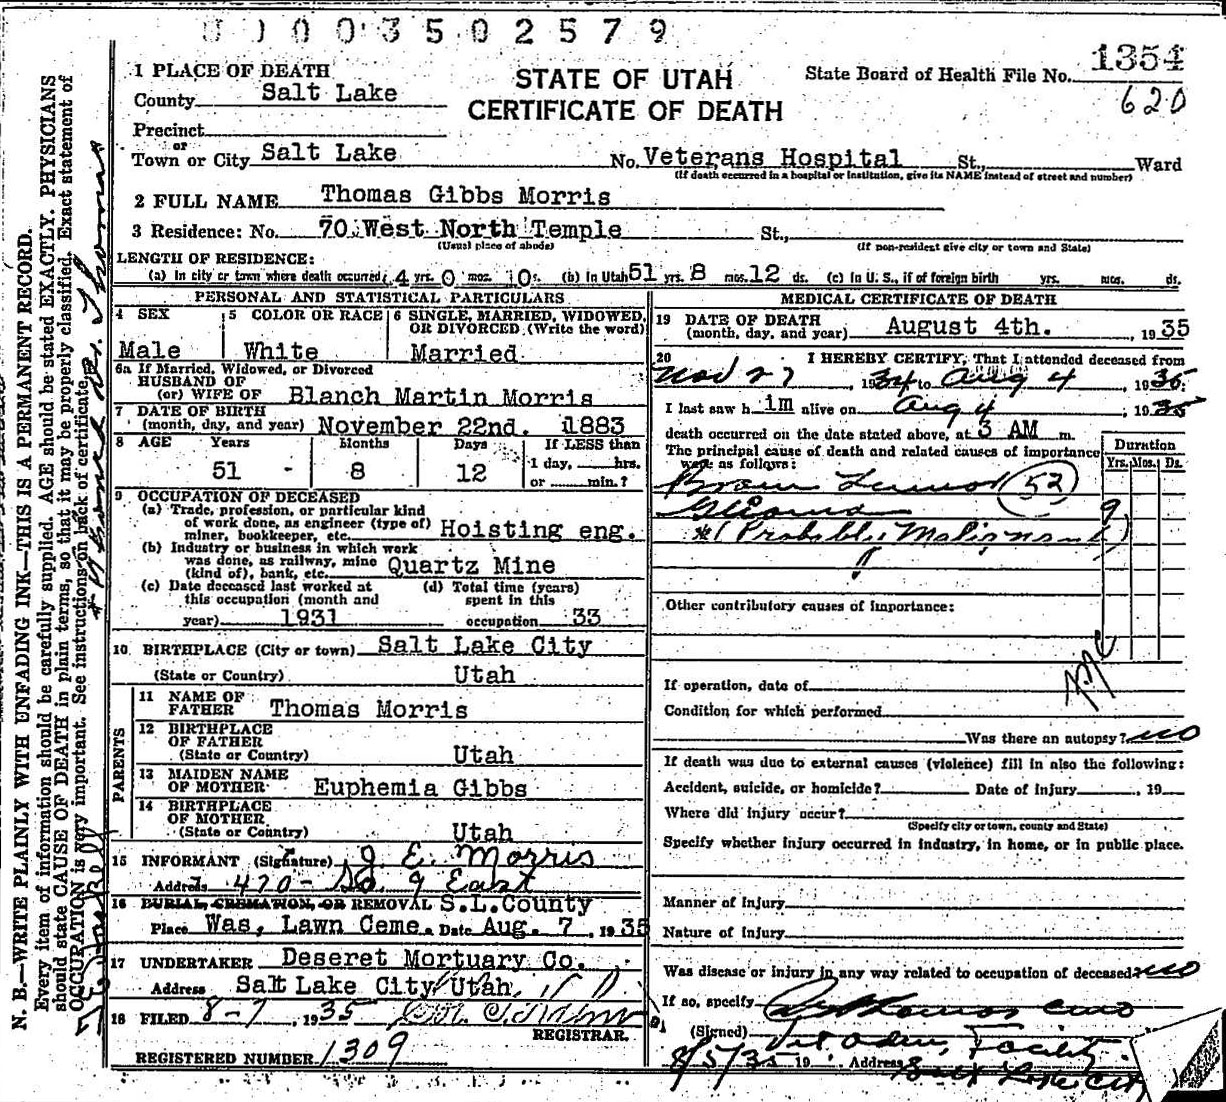 0 0 0 0 3 5 0 2 5 7 9
STATE OF UTAH
CERTIFICATE OF DEATH
State Board of Health File No. 1354
620
1 PLACE OF DEATH
County Salt Lake
Precinct
or
Town or City Salt Lake No. Veterans Hospital St., Ward
(If death occurred in a hospital or institution, give its NAME instead of street and number)
2 FULL NAME Thomas Gibbs Morris
3 Residence: No. 70 West North Temple St.,
(Usual place of abode) (If non-resident give city or town and State)
LENGTH OF RESIDENCE:
(a) In city or town where death occurred 4 yrs. 0 mos. 10 s. (b) In Utah 51 yrs. 8 mos. 12 ds. (c) In U. S., if of foreign birth yrs. mos. ds.
PERSONAL AND STATISTICAL PARTICULARS
4 SEX
Male
5 COLOR OR RACE
White
6 SINGLE, MARRIED, WIDOWED, OR DIVORCED (Write the word)
Married
6a If Married, Widowed, or Divorced
HUSBAND OF
(or) WIFE OF Blanch Martin Morris
7 DATE OF BIRTH
(month, day, and year) November 22nd. 1883
8 AGE Years Months Days If LESS than
51 - 8 12 1 day, hrs.
or min.?
9 OCCUPATION OF DECEASED
(a) Trade, profession, or particular kind
of work done, as engineer (type of)
miner, bookkeeper, etc. Hoisting eng.
(b) Industry or business in which work
was done, as railway, mine
(kind of), bank, etc. Quartz Mine
(c) Date deceased last worked at
this occupation (month and
year) 1931
(d) Total time (years)
spent in this
occupation 33
10 BIRTHPLACE (City or town) Salt Lake City
(State or Country) Utah
PARENTS
11 NAME OF
FATHER Thomas Morris
12 BIRTHPLACE
OF FATHER
(State or Country) Utah
13 MAIDEN NAME
OF MOTHER Euphemia Gibbs
14 BIRTHPLACE
OF MOTHER
(State or Country) Utah
15 INFORMANT (Signature) J. E. Morris
Address 470 - So. 9 East
16 BURIAL, CREMATION, OR REMOVAL S.L. County
Place Was, Lawn Ceme. Date Aug. 7, 1935
17 UNDERTAKER Deseret Mortuary Co.
Address Salt Lake City Utah.
18 FILED 8-7, 1935
REGISTRAR.
REGISTERED NUMBER 1309
MEDICAL CERTIFICATE OF DEATH
19 DATE OF DEATH
(month, day, and year) August 4th., 1935
20 I HEREBY CERTIFY, That I attended deceased from
Nov 27, 1934 to Aug 4, 1935.
I last saw h im alive on Aug 4, 1935
death occurred on the date stated above, at 3 AM m.
The principal cause of death and related causes of importance
were as follows:
Duration
Yrs. Mos. Ds.
Brain Tumor (52)
Glioma 9
*(Probably Malignant)
Other contributory causes of importance:
If operation, date of
Condition for which performed
Was there an autopsy? no
If death was due to external causes (violence) fill in also the following:
Accident, suicide, or homicide? Date of injury , 19
Where did injury occur?
(Specify city or town, county and State)
Specify whether injury occurred in industry, in home, or in public place.
Manner of Injury
Nature of Injury
Was disease or injury in any way related to occupation of deceased? no
If so, specify
(Signed) Thomas CMO
Vet. Adm. Facility.
8/5/35 19 . Address
Salt Lake City
N. B.—WRITE PLAINLY WITH UNFADING INK—THIS IS A PERMANENT RECORD.
Every item of information should be carefully supplied. AGE should be stated EXACTLY. PHYSICIANS
should state CAUSE OF DEATH in plain terms, so that it may be properly classified. Exact statement of
OCCUPATION is very important. See instructions on back of certificate.